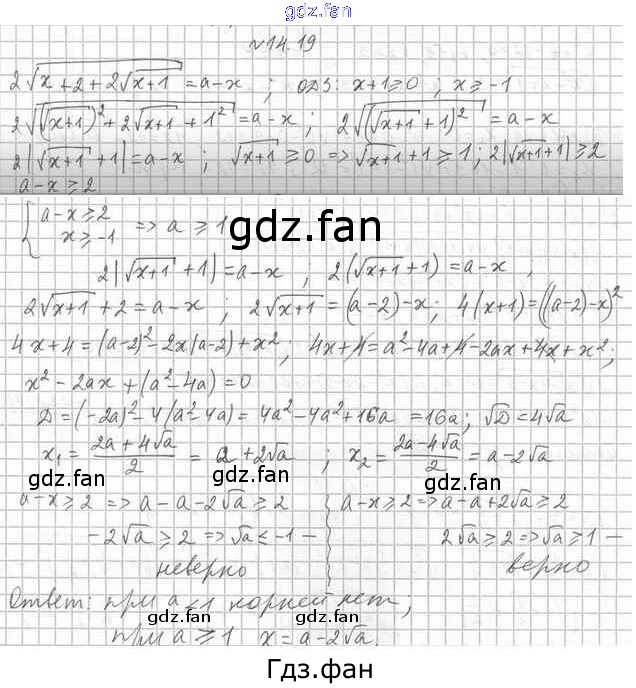 gdz.fan
№14.19
2√(x+2+2√(x+1)) = a-x ; одз: x+1≥0 ; x≥-1
2√((√(x+1))²+2√(x+1)+1²) = a-x ; 2√((√(x+1)+1)²) = a-x
2|√(x+1)+1| = a-x ; √(x+1) ≥ 0 => √(x+1)+1 ≥ 1; 2|√(x+1)+1| ≥ 2
a-x ≥ 2
{ a-x ≥ 2
x ≥ -1 => a ≥ 1
gdz.fan
2|√(x+1)+1| = a-x ; 2(√(x+1)+1) = a-x ;
2√(x+1)+2 = a-x ; 2√(x+1) = (a-2)-x ; 4(x+1) = ((a-2)-x)²
4x+4 = (a-2)²-2x(a-2)+x² ; 4x+4 = a²-4a+4-2ax+4x+x² ;
x²-2ax+(a²-4a) = 0
D = (-2a)²-4(a²-4a) = 4a²-4a²+16a = 16a ; √D = 4√a
x₁ = (2a+4√a)/2 = a+2√a ; x₂ = (2a-4√a)/2 = a-2√a
gdz.fan gdz.fan gdz.fan
a-x ≥ 2 => a-a-2√a ≥ 2 a-x ≥ 2 => a-a+2√a ≥ 2
-2√a ≥ 2 => √a ≤ -1 – 2√a ≥ 2 => √a ≥ 1 –
неверно верно
Ответ: при a<1 корней нет;
gdz.fan gdz.fan
при a ≥ 1 x = a-2√a.
Гдз.фан